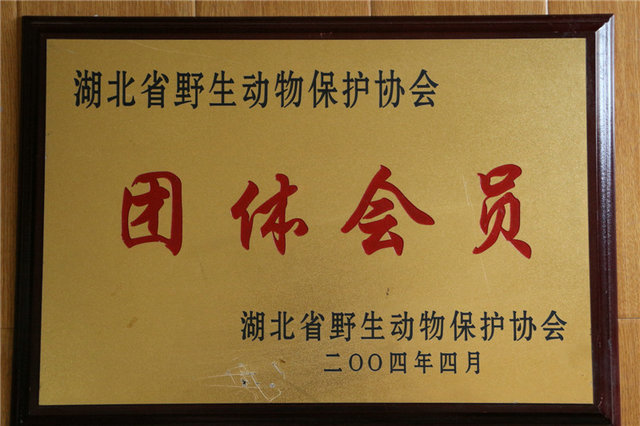 湖北省野生动物保护协会
团体会员
湖北省野生动物保护协会
二〇〇四年四月